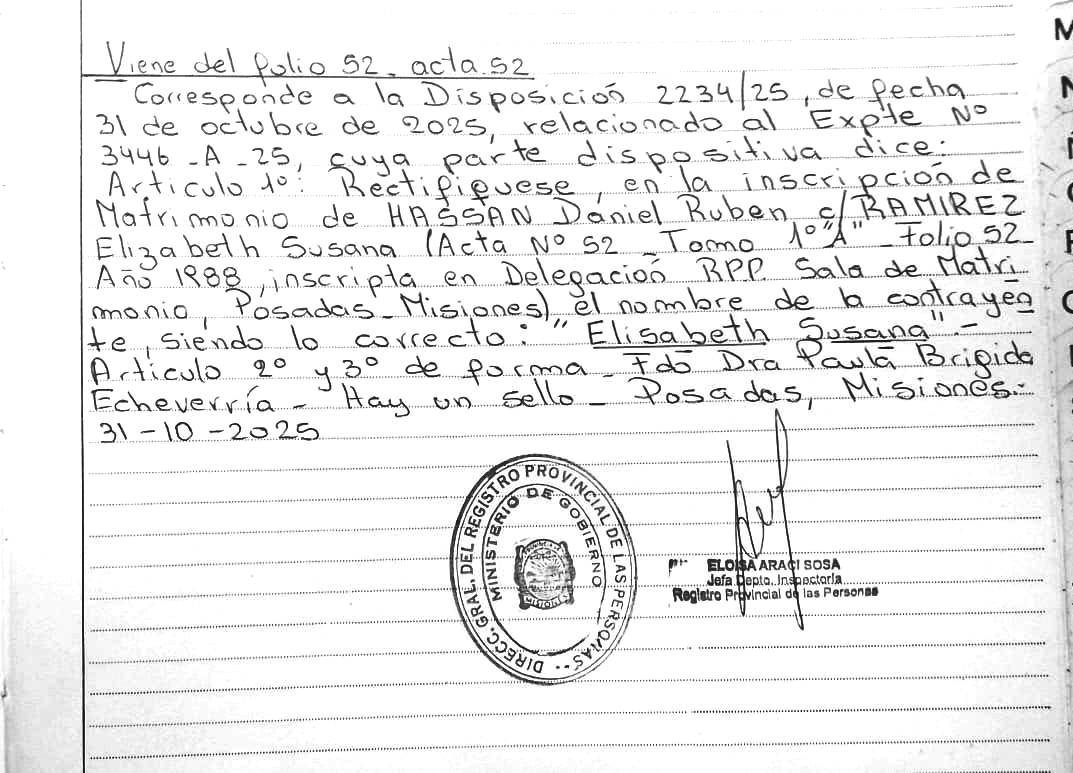 Viene del folio 52. acta.52
Corresponde a la Disposición 2234/25, de fecha
31 de octubre de 2025, relacionado al Expte Nº
3446 - A - 25, cuya parte dispositiva dice:
Articulo 1º: Rectifiquese, en la inscripción de
Matrimonio de HASSAN Daniel Ruben c/ RAMIREZ
Elizabeth Susana (Acta Nº 52 - Tomo 1º "A" - Folio 52
Año 1988, inscripta en Delegación RPP. Sala de Matri
monio, Posadas - Misiones) el nombre de la contrayen
te, siendo lo correcto: "Elisabeth Susana" -
Articulo 2º y 3º de forma - Fdo Dra Paula Brigida
Echeverría - Hay un sello - Posadas, Misiones:
31 - 10 - 2025
DIRECC. GRAL. DEL REGISTRO PROVINCIAL DE LAS PERSONAS
MINISTERIO DE GOBIERNO
MISIONES
ELOISA ARACI SOSA
Jefa Depto. Inspectoría
Registro Provincial de las Personas
M